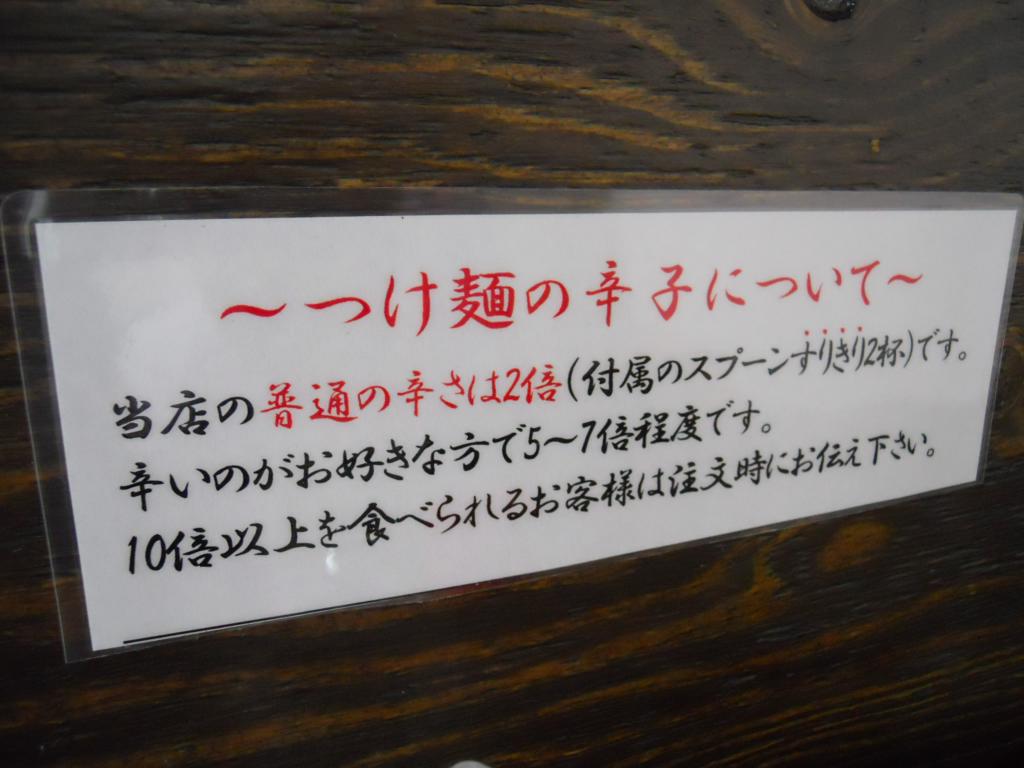 ～つけ麺の辛子について～
当店の普通の辛さは2倍(付属のスプーンすりきり2杯)です。
辛いのがお好きな方で5～7倍程度です。
10倍以上を食べられるお客様は注文時にお伝え下さい。